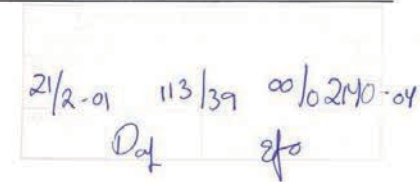 21/2-01 113/39 00/02140-04
Daf efo